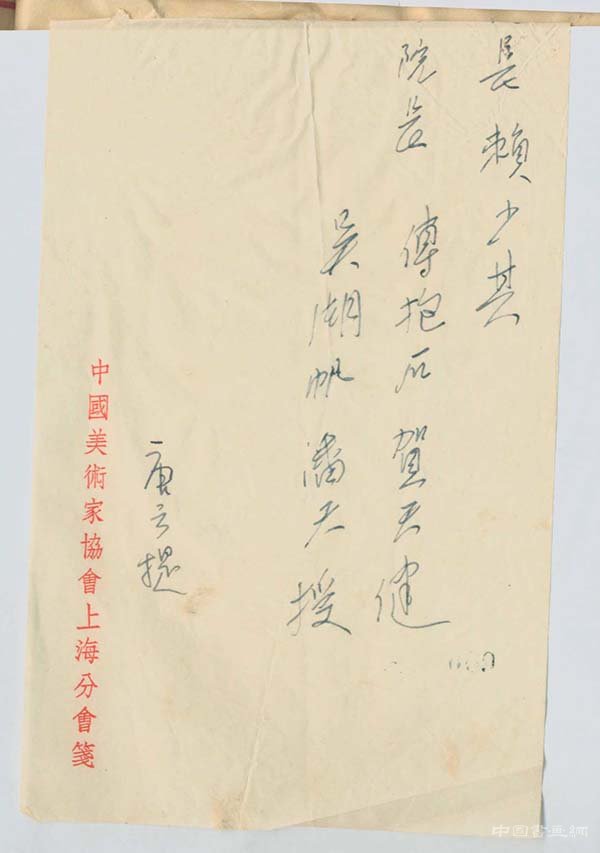 長 賴少其
院長 傅抱石 賀天健
吳湖帆 潘天授
唐云提
中國美術家協會上海分會箋
中国書画網